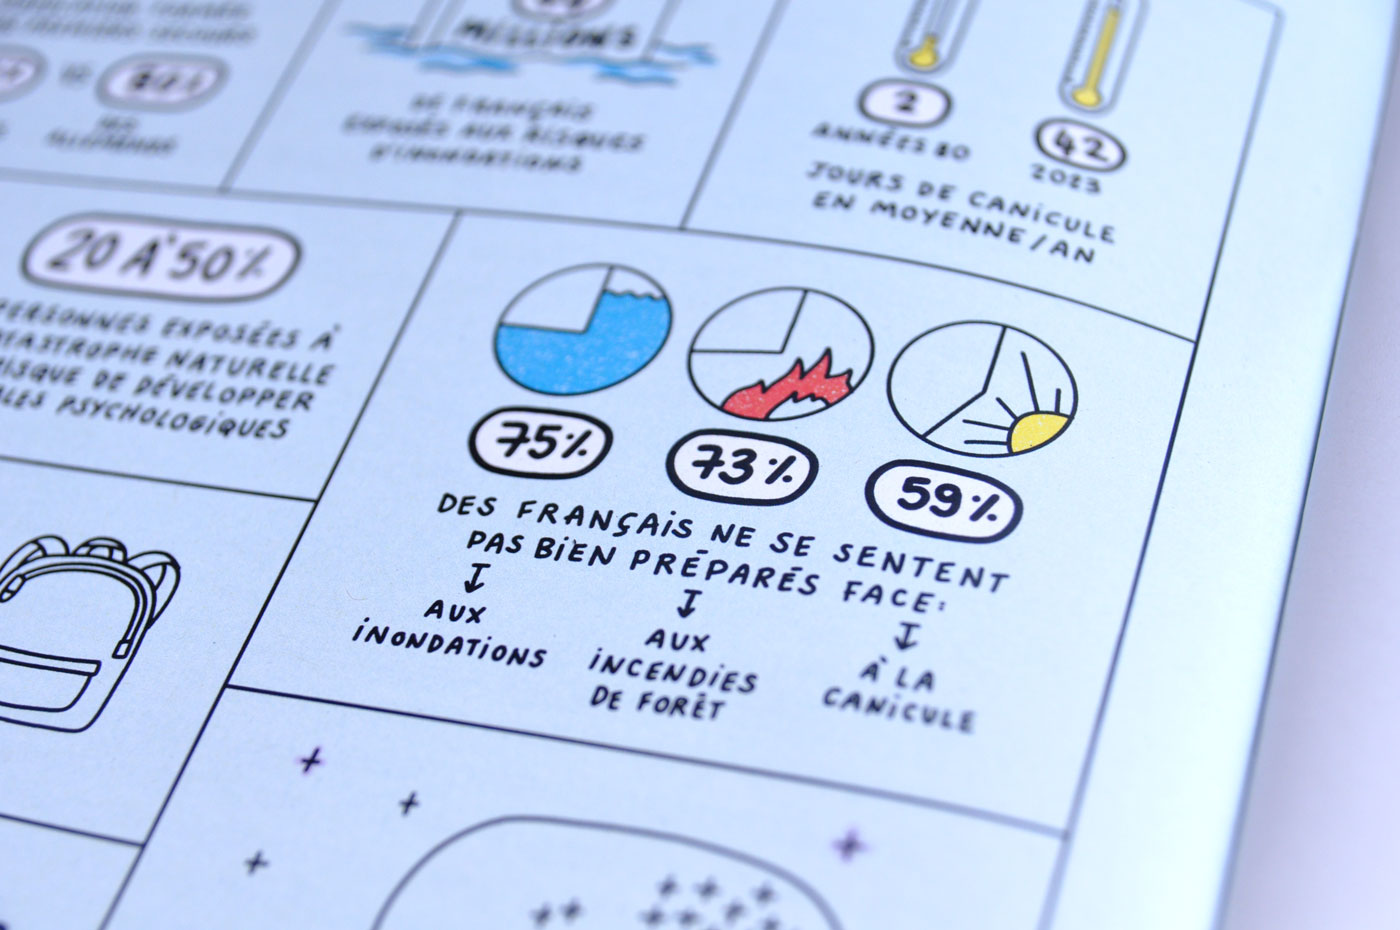 MILLIONS
DE FRANÇAIS
EXPOSÉS AUX RISQUES
D'INONDATIONS
2
ANNÉES 80
42
2023
JOURS DE CANICULE
EN MOYENNE/AN
20 À 50%
PERSONNES EXPOSÉES À
NATURELLE
RISQUE DE DÉVELOPPER
PSYCHOLOGIQUES
75%
73%
59%
DES FRANÇAIS NE SE SENTENT
PAS BIEN PRÉPARÉS FACE:
AUX
INONDATIONS
AUX
INCENDIES
DE FORÊT
À LA
CANICULE